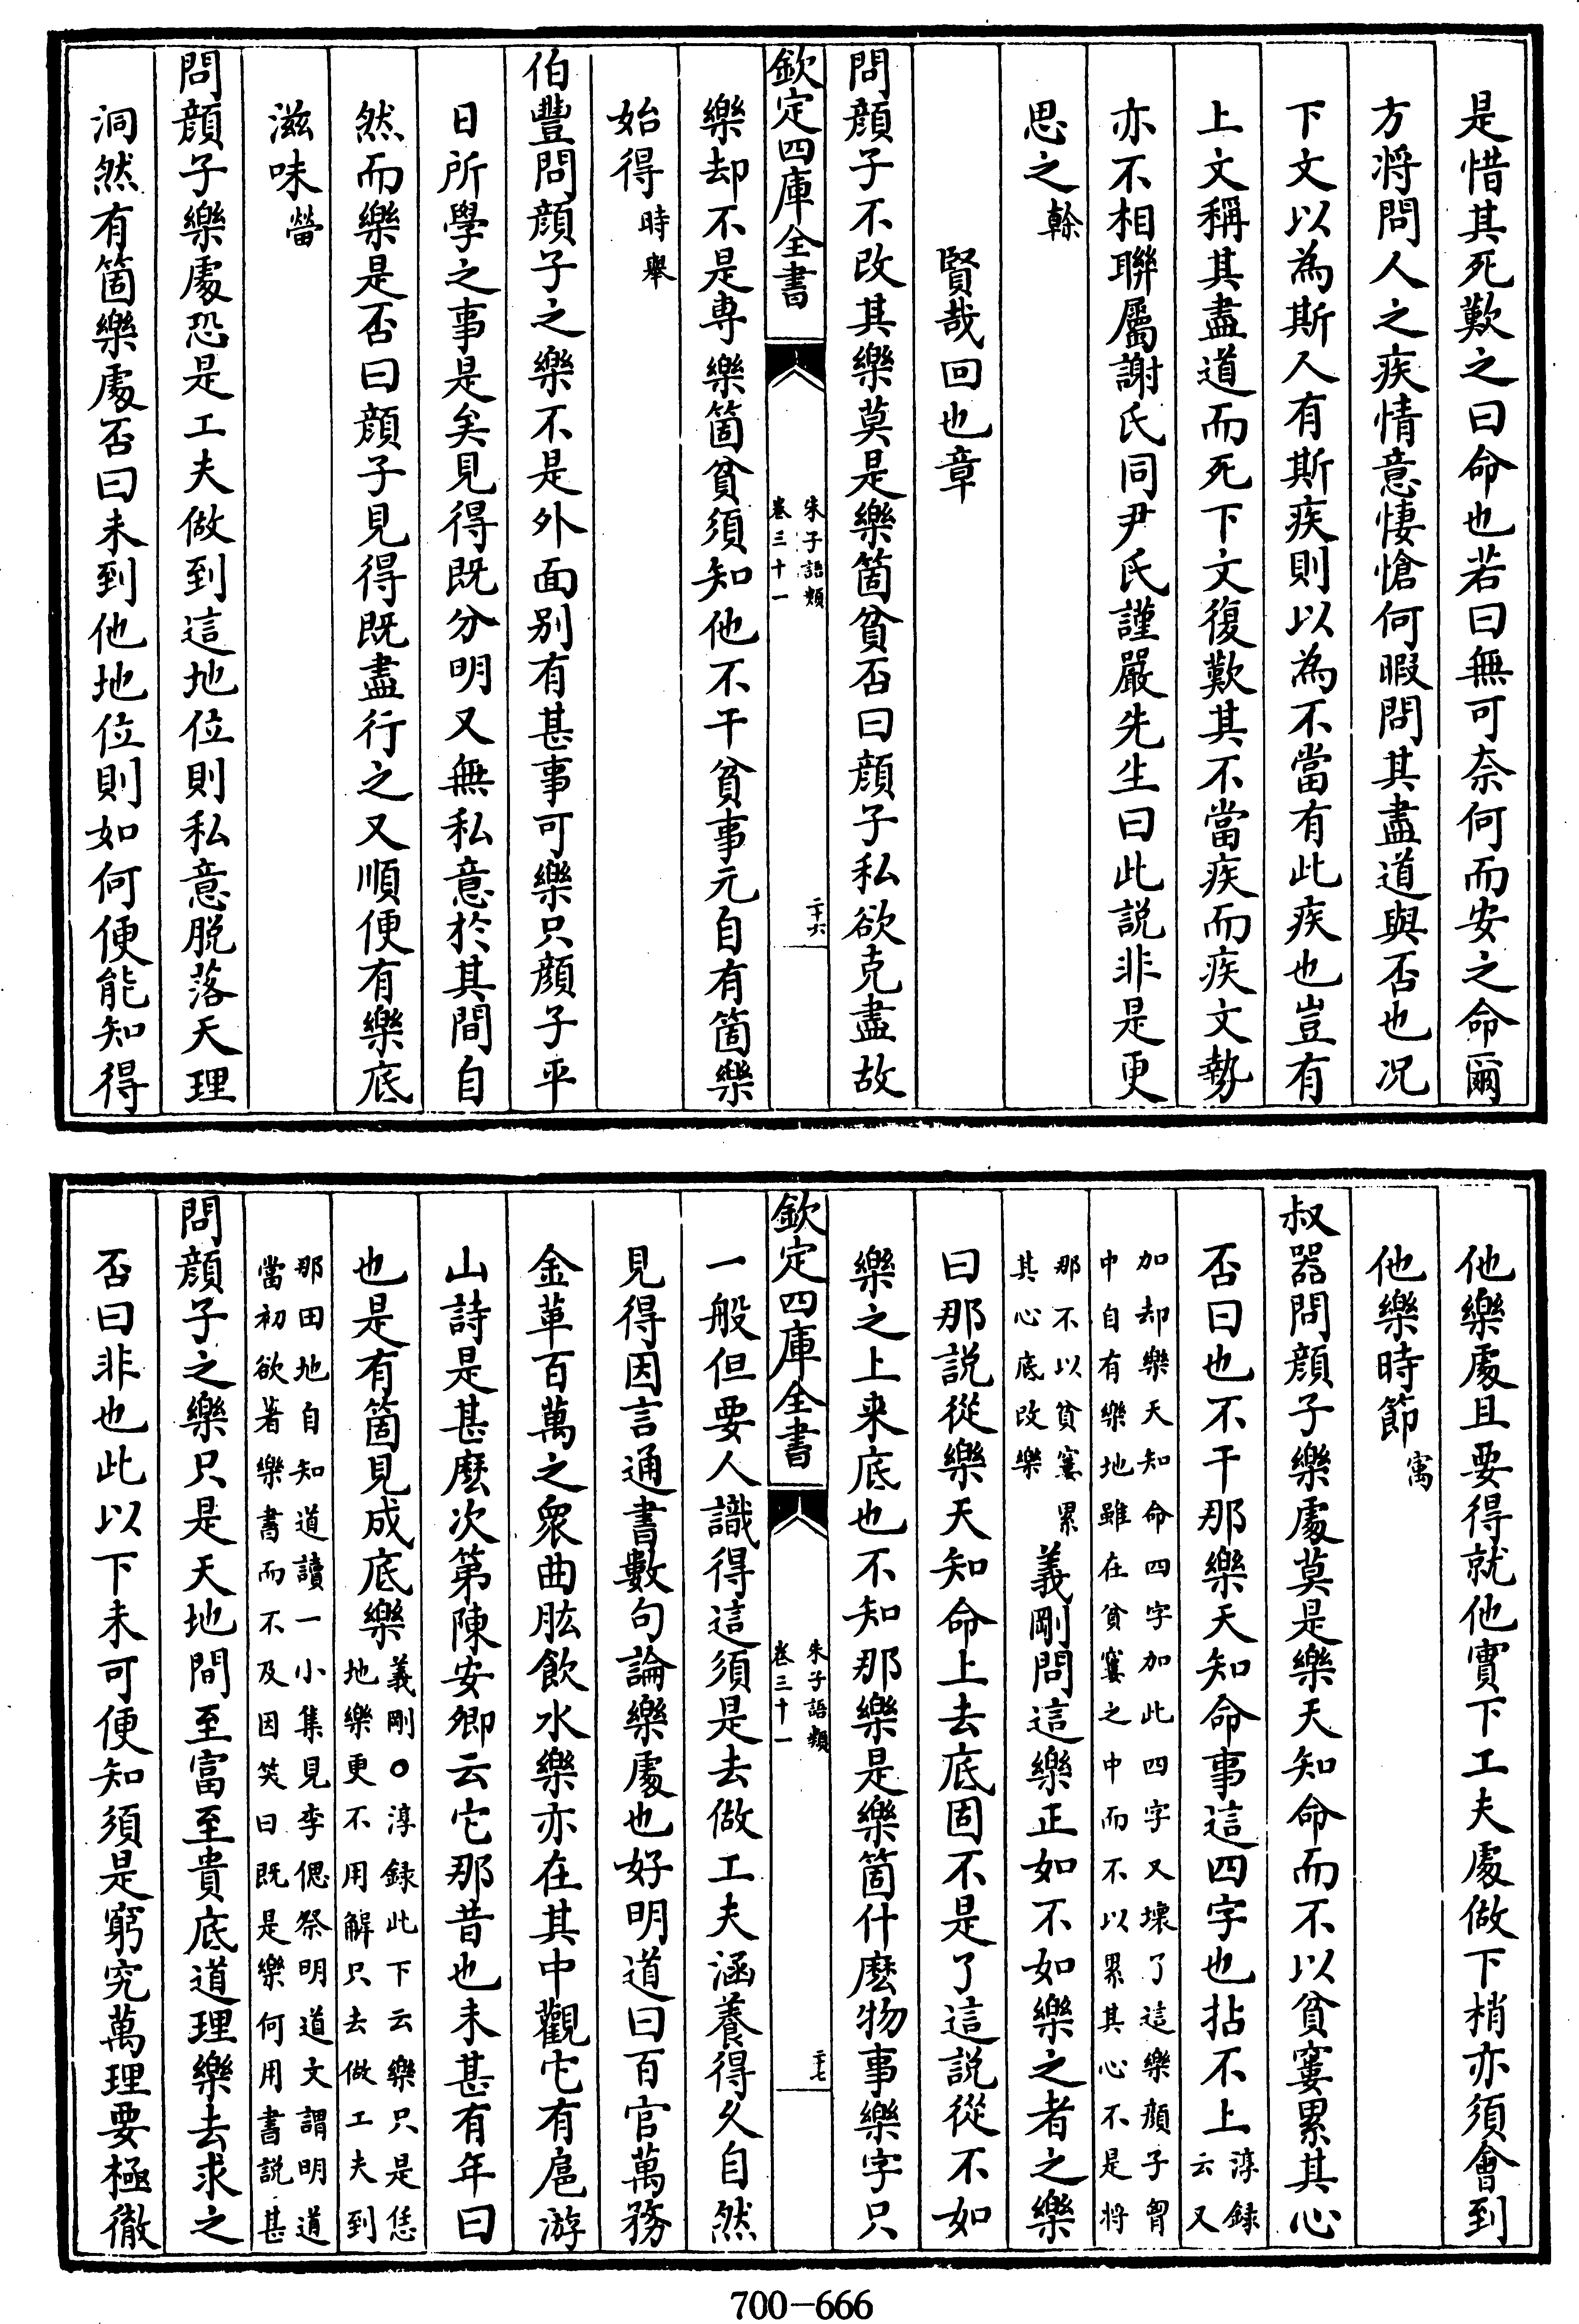 是惜其死歎之曰命也若曰無可奈何而安之命爾
方將問人之疾情意悽愴何暇問其盡道與否也况
下文以為斯人有斯疾則以為不當有此疾也豈有
上文稱其盡道而死下文復歎其不當疾而疾文勢
亦不相聯屬謝氏同尹氏謹嚴先生曰此説非是更
思之榦
賢哉回也章
問顔子不改其樂莫是樂箇貧否曰顔子私欲克盡故
欽定四庫全書
朱子語類
卷三十一
二十六
樂却不是専樂箇貧須知他不干貧事元自有箇樂
始得時舉
伯豐問顔子之樂不是外面别有甚事可樂只顔子平
日所學之事是矣見得既分明又無私意於其間自
然而樂是否曰顔子見得既盡行之又順便有樂底
滋味㽦
問顔子樂處恐是工夫做到這地位則私意脱落天理
洞然有箇樂處否曰未到他地位則如何便能知得
他樂處且要得就他實下工夫處做下梢亦須會到
他樂時節㝢
叔器問顔子樂處莫是樂天知命而不以貧窶累其心
否曰也不干那樂天知命事這四字也拈不上淳録
云又
加却樂天知命四字加此四字又壊了這樂顔子胷
中自有樂地雖在貧窶之中而不以累其心不是将
那不以貧窶累
其心底改樂
義剛問這樂正如不如樂之者之樂
曰那説從樂天知命上去底固不是了這説從不如
樂之上来底也不知那樂是樂箇什麽物事樂字只
欽定四庫全書
朱子語類
卷三十一
二十七
一般但要人識得這須是去做工夫涵養得久自然
見得因言通書數句論樂處也好明道曰百官萬務
金革百萬之衆曲肱飲水樂亦在其中觀它有扈游
山詩是甚麽次第陳安卿云它那昔也未甚有年曰
也是有箇見成底樂義剛○淳録此下云樂只是恁
地樂更不用解只去做工夫到
那田地自知道讀一小集見李偲祭明道文謂明道
當初欲著樂書而不及因笑曰既是樂何用書説甚
問顔子之樂只是天地間至富至貴底道理樂去求之
否曰非也此以下未可便知須是窮究萬理要極徹
700-666